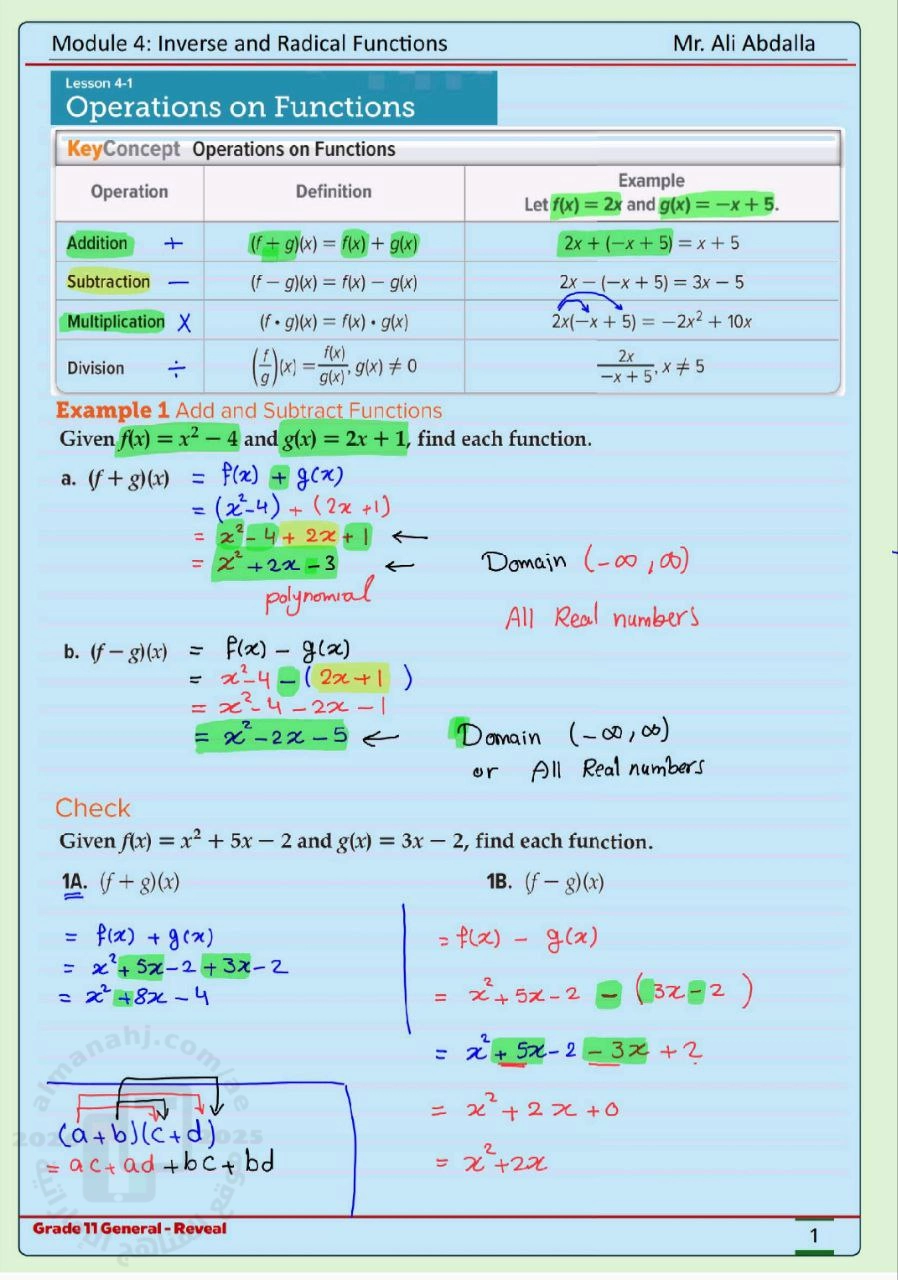 Module 4: Inverse and Radical Functions Mr. Ali Abdalla
Lesson 4-1
Operations on Functions
KeyConcept Operations on Functions
Operation Definition Example
Let f(x) = 2x and g(x) = −x + 5.
Addition + (f + g)(x) = f(x) + g(x) 2x + (−x + 5) = x + 5
Subtraction − (f − g)(x) = f(x) − g(x) 2x − (−x + 5) = 3x − 5
Multiplication X (f · g)(x) = f(x) · g(x) 2x(−x + 5) = −2x² + 10x
Division ÷ (f/g)(x) = f(x)/g(x), g(x) ≠ 0 2x/(−x + 5), x ≠ 5
Example 1 Add and Subtract Functions
Given f(x) = x² − 4 and g(x) = 2x + 1, find each function.
a. (f + g)(x) = f(x) + g(x)
= (x²-4) + (2x +1)
= x² - 4 + 2x + 1 ←
= x² + 2x - 3 ← Domain (-∞, ∞)
polynomial
All Real numbers
b. (f − g)(x) = f(x) − g(x)
= x²-4 − (2x+1)
= x²-4 - 2x - 1
= x² - 2x - 5 ← Domain (-∞, ∞)
or All Real numbers
Check
Given f(x) = x² + 5x − 2 and g(x) = 3x − 2, find each function.
1A. (f + g)(x)
= f(x) + g(x)
= x² + 5x - 2 + 3x - 2
= x² + 8x - 4
1B. (f − g)(x)
= f(x) − g(x)
= x² + 5x - 2 − (3x - 2)
= x² + 5x - 2 - 3x + 2
= x² + 2x + 0
= x² + 2x
(a+b)(c+d)
= ac + ad + bc + bd
almanahj.com/ae
2025
Grade 11 General - Reveal 1